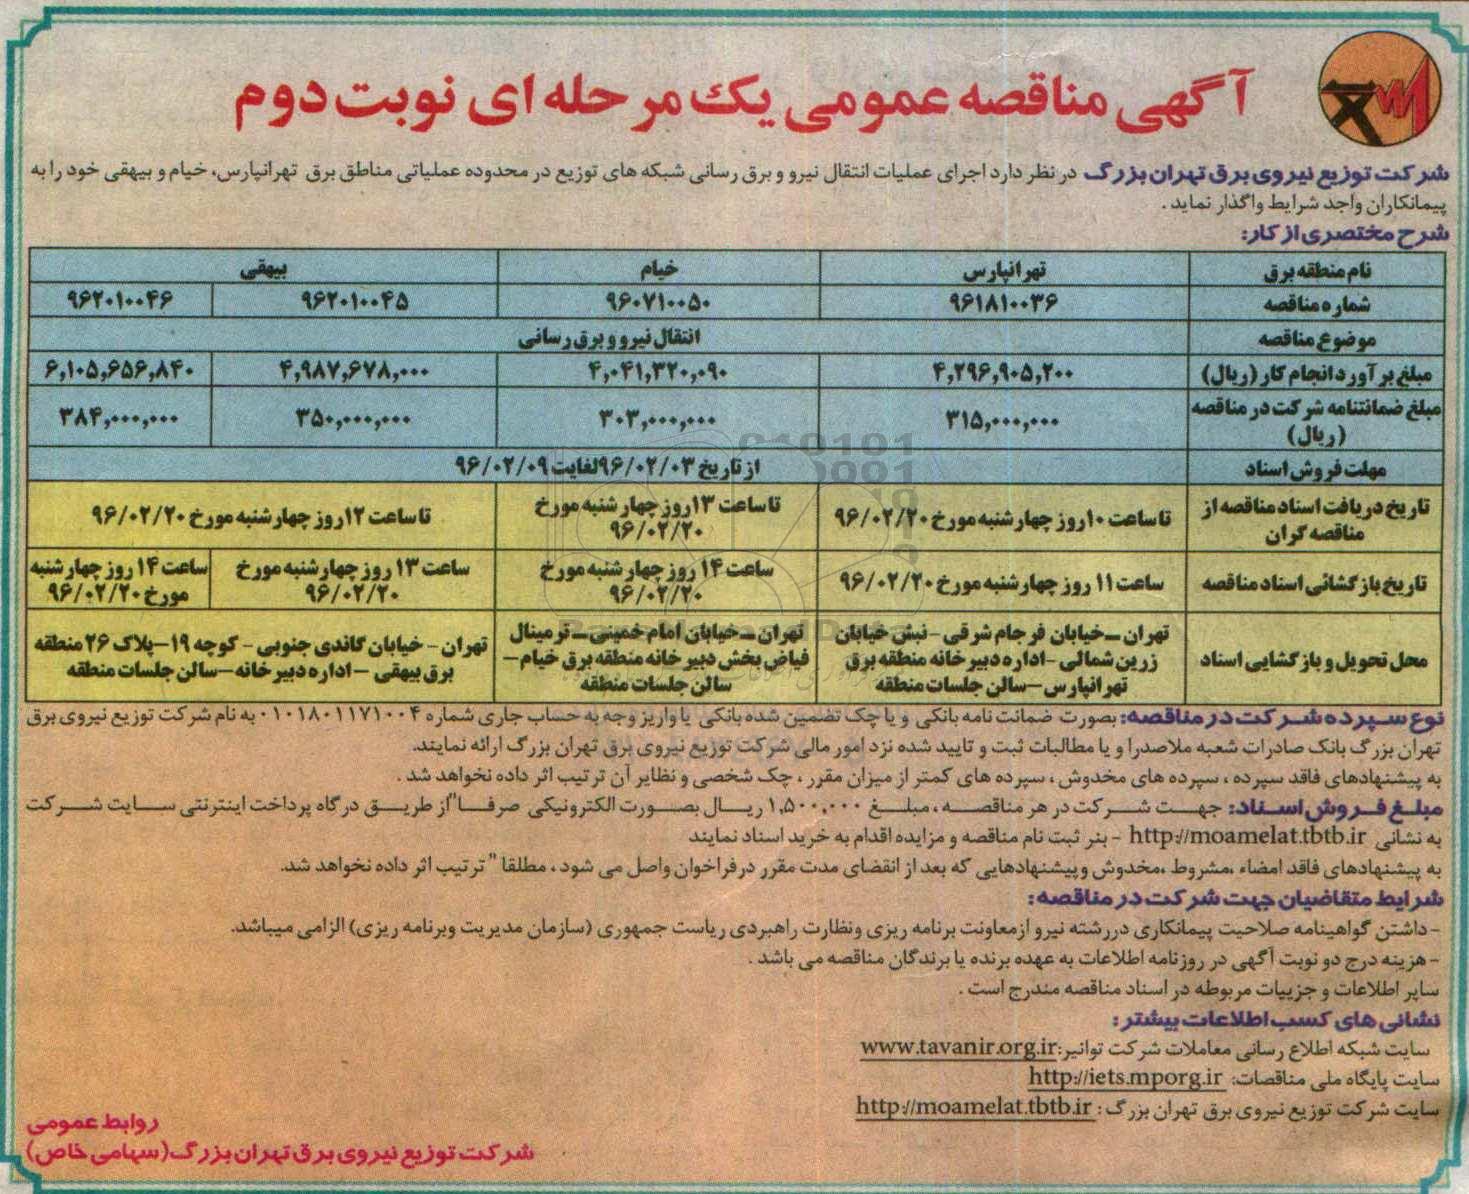 آگهی مناقصه عمومی یک مرحله ای نوبت دوم
شرکت توزیع نیروی برق تهران بزرگ در نظر دارد اجرای عملیات انتقال نیرو و برق رسانی شبکه های توزیع در محدوده عملیاتی مناطق برق تهرانپارس، خیام و بیهقی خود را به
پیمانکاران واجد شرایط واگذار نماید .
شرح مختصری از کار:
نام منطقه برق تهرانپارس خیام بیهقی
شماره مناقصه ۹۶۱۸۱۰۰۳۶ ۹۶۰۷۱۰۰۵۰ ۹۶۲۰۱۰۰۴۵ ۹۶۲۰۱۰۰۴۶
موضوع مناقصه انتقال نیرو و برق رسانی
مبلغ برآورد انجام کار (ریال) ۴,۲۹۶,۹۰۵,۲۰۰ ۴,۰۴۱,۳۲۰,۰۹۰ ۴,۹۸۷,۶۷۸,۰۰۰ ۶,۱۰۵,۶۵۶,۸۴۰
مبلغ ضمانتنامه شرکت در مناقصه
(ریال) ۳۱۵,۰۰۰,۰۰۰ ۳۰۳,۰۰۰,۰۰۰ ۳۵۰,۰۰۰,۰۰۰ ۳۸۴,۰۰۰,۰۰۰
مهلت فروش اسناد از تاریخ ۹۶/۰۲/۰۳ لغایت ۹۶/۰۲/۰۹
تاریخ دریافت اسناد مناقصه از
مناقصه گران
تا ساعت ۱۰ روز چهارشنبه مورخ ۹۶/۰۲/۲۰
تا ساعت ۱۳ روز چهار شنبه مورخ
۹۶/۰۲/۲۰
تا ساعت ۱۲ روز چهارشنبه مورخ ۹۶/۰۲/۲۰
تاریخ بازگشائی اسناد مناقصه
ساعت ۱۱ روز چهارشنبه مورخ ۹۶/۰۲/۲۰
ساعت ۱۴ روز چهارشنبه مورخ
۹۶/۰۲/۲۰
ساعت ۱۳ روز چهارشنبه مورخ
۹۶/۰۲/۲۰
ساعت ۱۴ روز چهارشنبه
مورخ ۹۶/۰۲/۲۰
محل تحویل و بازگشایی اسناد
تهران – خیابان فرجام شرقی - نبش خیابان
زرین شمالی - اداره دبیرخانه منطقه برق
تهرانپارس – سالن جلسات منطقه
تهران – خیابان امام خمینی – ترمینال
فیاض بخش دبیرخانه منطقه برق خیام –
سالن جلسات منطقه
تهران - خیابان گاندی جنوبی - کوچه ۱۹ – پلاک ۲۶ منطقه
برق بیهقی – اداره دبیرخانه – سالن جلسات منطقه
نوع سپرده شرکت در مناقصه: بصورت ضمانت نامه بانکی و یا چک تضمین شده بانکی یا واریز وجه به حساب جاری شماره ۰۱۰۱۸۰۱۱۷۱۰۰۴ به نام شرکت توزیع نیروی برق
تهران بزرگ بانک صادرات شعبه ملاصدرا و یا مطالبات ثبت و تایید شده نزد امور مالی شرکت توزیع نیروی برق تهران بزرگ ارائه نمایند.
به پیشنهادهای فاقد سپرده ، سپرده های مخدوش ، سپرده های کمتر از میزان مقرر ، چک شخصی و نظایر آن ترتیب اثر داده نخواهد شد .
مبلغ فروش اسناد: جهت شرکت در هر مناقصه ، مبلغ ۱,۵۰۰,۰۰۰ ریال بصورت الکترونیکی صرفا" از طریق درگاه پرداخت اینترنتی سایت شرکت
به نشانی http://moamelat.tbtb.ir - بنر ثبت نام مناقصه و مزایده اقدام به خرید اسناد نمایند
به پیشنهادهای فاقد امضاء ،مشروط ،مخدوش و پیشنهادهایی که بعد از انقضای مدت مقرر در فراخوان واصل می شود ، مطلقا " ترتیب اثر داده نخواهد شد.
شرایط متقاضیان جهت شرکت در مناقصه :
- داشتن گواهینامه صلاحیت پیمانکاری در رشته نیرو از معاونت برنامه ریزی ونظارت راهبردی ریاست جمهوری (سازمان مدیریت وبرنامه ریزی) الزامی میباشد.
- هزینه درج دو نوبت آگهی در روزنامه اطلاعات به عهده برنده یا برندگان مناقصه می باشد .
سایر اطلاعات و جزییات مربوطه در اسناد مناقصه مندرج است .
نشانی های کسب اطلاعات بیشتر :
سایت شبکه اطلاع رسانی معاملات شرکت توانیر: www.tavanir.org.ir
سایت پایگاه ملی مناقصات: http://iets.mporg.ir
سایت شرکت توزیع نیروی برق تهران بزرگ : http://moamelat.tbtb.ir
روابط عمومی
شرکت توزیع نیروی برق تهران بزرگ (سهامی خاص)